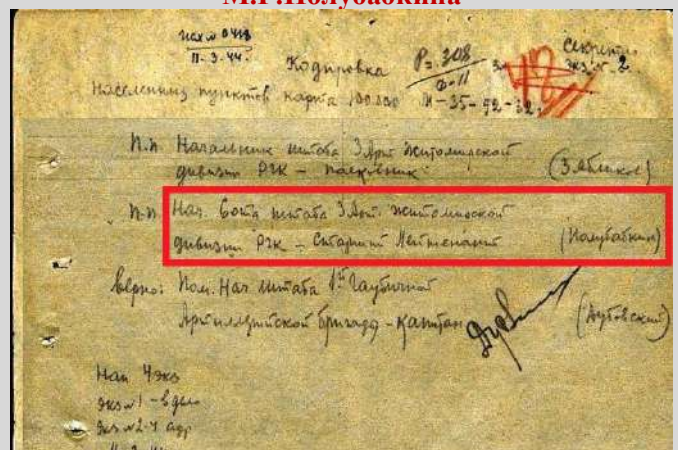 М.Г.Полубабкина
исх № 0418
11.3.44.
Кодировка Р=308 Секретно
Ф-11 Экз № 2.
населенных пунктов карта 100.000
п.п. Начальник штаба 3 Арт Житомирской
дивизии РГК – полковник (Зябликов)
п.п. Нач. 6 отд штаба 3 Арт. Житомирской
дивизии РГК – Старший Лейтенант (Полубабкин)
верно: Пом. Нач штаба 1й Гаубичной
Артиллерийской бригады – Капитан (Дубовский)
Нап 4 экз
экз № 1 – в дело
экз № 2-4 адр